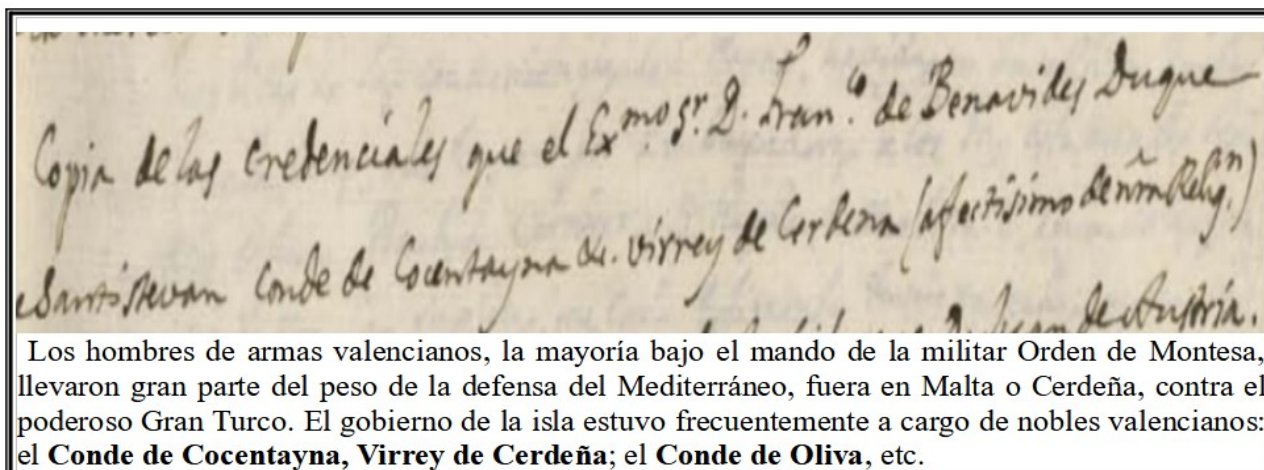 Copia de las credenciales que el Ex.mo Sr. D. Fran.co de Benavides Duque
e Santistevan Conde de Cocentayna &c. virrey de Cerdena (afectisimo de nr̃a Relig.on)
de Austria.
Los hombres de armas valencianos, la mayoría bajo el mando de la militar Orden de Montesa,
llevaron gran parte del peso de la defensa del Mediterráneo, fuera en Malta o Cerdeña, contra el
poderoso Gran Turco. El gobierno de la isla estuvo frecuentemente a cargo de nobles valencianos:
el Conde de Cocentayna, Virrey de Cerdeña; el Conde de Oliva, etc.